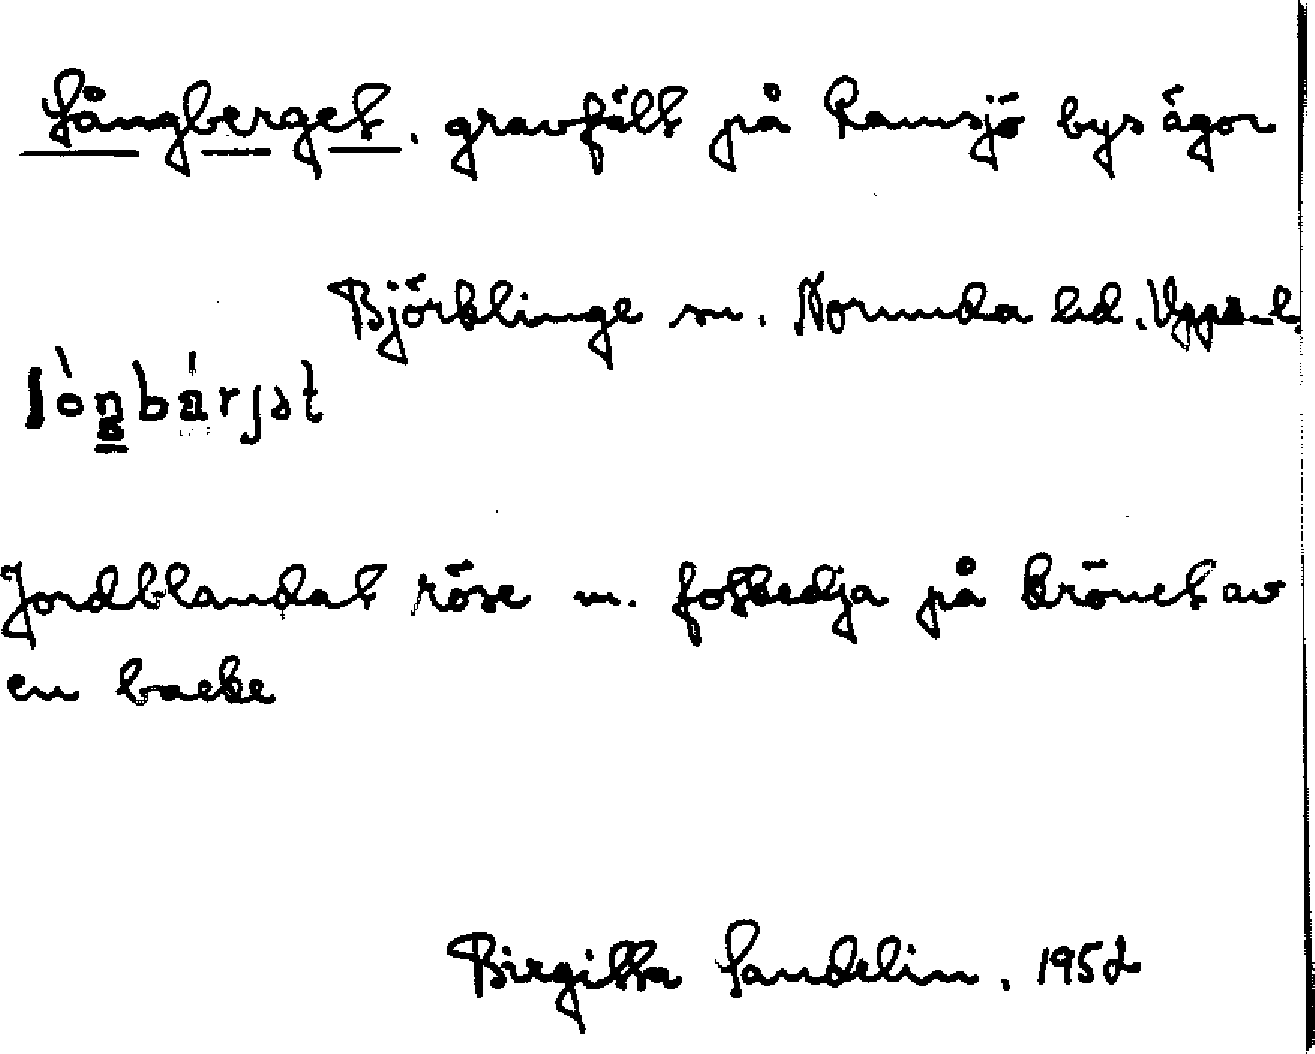 Långberget, gravfält på Ramsjö bys ägor
Björklinge sn. Norunda hd. Upps. l.
Jordblandat röse m. fotkedja på krönet av
en backe
Birgitta Sandelin, 1952